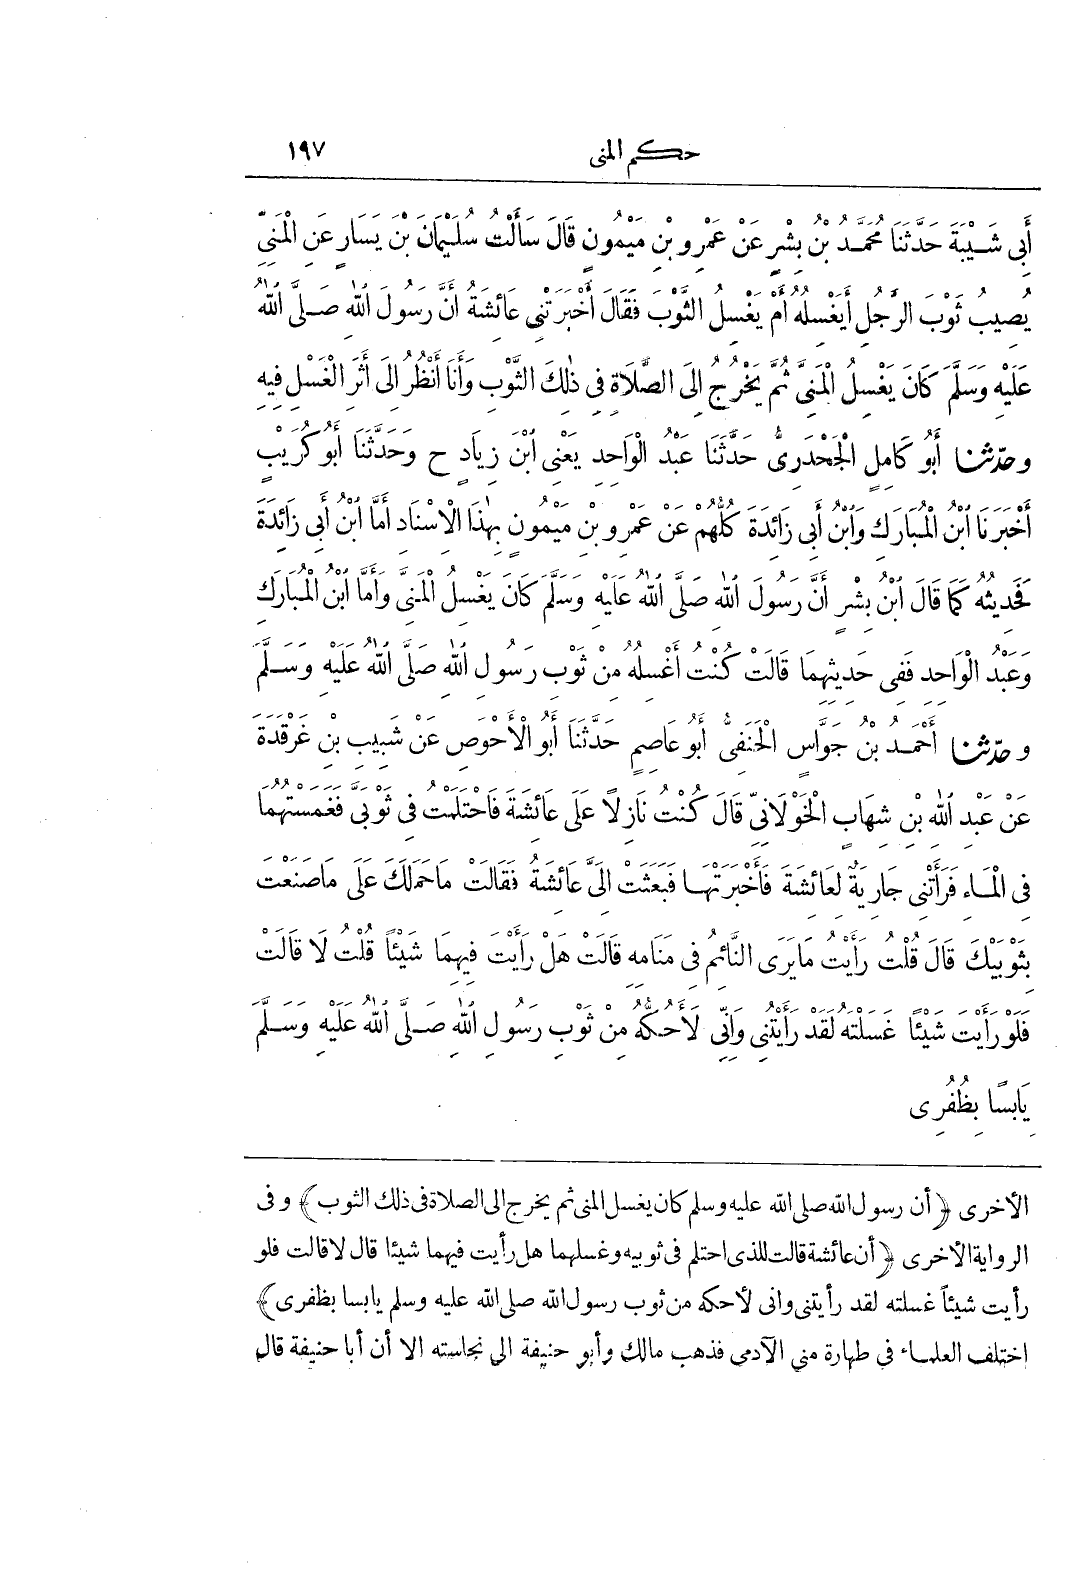 حكم المنى ١٩٧
أَبِى شَيْبَةَ حَدَّثَنَا مُحَمَّدُ بْنُ بِشْرٍ عَنْ عَمْرِو بْنِ مَيْمُونٍ قَالَ سَأَلْتُ سُلَيْمَانَ بْنَ يَسَارٍ عَنِ الْمَنِىِّ
يُصِيبُ ثَوْبَ الرَّجُلِ أَيَغْسِلُهُ أَمْ يَغْسِلُ الثَّوْبَ فَقَالَ أَخْبَرَتْنِى عَائِشَةُ أَنَّ رَسُولَ اللهِ صَلَّى اللهُ
عَلَيْهِ وَسَلَّمَ كَانَ يَغْسِلُ الْمَنِىَّ ثُمَّ يَخْرُجُ إِلَى الصَّلَاةِ فِى ذٰلِكَ الثَّوْبِ وَأَنَا أَنْظُرُ إِلَى أَثَرِ الْغَسْلِ فِيهِ
وحدّثنا أَبُو كَامِلٍ الْجَحْدَرِىُّ حَدَّثَنَا عَبْدُ الْوَاحِدِ يَعْنِى ابْنَ زِيَادٍ ح وَحَدَّثَنَا أَبُو كُرَيْبٍ
أَخْبَرَنَا ابْنُ الْمُبَارَكِ وَابْنُ أَبِى زَائِدَةَ كُلُّهُمْ عَنْ عَمْرِو بْنِ مَيْمُونٍ بِهٰذَا الْإِسْنَادِ أَمَّا ابْنُ أَبِى زَائِدَةَ
فَحَدِيثُهُ كَمَا قَالَ ابْنُ بِشْرٍ أَنَّ رَسُولَ اللهِ صَلَّى اللهُ عَلَيْهِ وَسَلَّمَ كَانَ يَغْسِلُ الْمَنِىَّ وَأَمَّا ابْنُ الْمُبَارَكِ
وَعَبْدُ الْوَاحِدِ فَفِى حَدِيثِهِمَا قَالَتْ كُنْتُ أَغْسِلُهُ مِنْ ثَوْبِ رَسُولِ اللهِ صَلَّى اللهُ عَلَيْهِ وَسَلَّمَ
وحدّثنا أَحْمَدُ بْنُ جَوَّاسٍ الْحَنَفِىُّ أَبُو عَاصِمٍ حَدَّثَنَا أَبُو الْأَحْوَصِ عَنْ شَبِيبِ بْنِ غَرْقَدَةَ
عَنْ عَبْدِ اللهِ بْنِ شِهَابٍ الْخَوْلَانِىِّ قَالَ كُنْتُ نَازِلًا عَلَى عَائِشَةَ فَاحْتَلَمْتُ فِى ثَوْبَىَّ فَغَمَسْتُهُمَا
فِى الْمَاءِ فَرَأَتْنِى جَارِيَةٌ لِعَائِشَةَ فَأَخْبَرَتْهَا فَبَعَثَتْ إِلَىَّ عَائِشَةُ فَقَالَتْ مَا حَمَلَكَ عَلَى مَا صَنَعْتَ
بِثَوْبَيْكَ قَالَ قُلْتُ رَأَيْتُ مَا يَرَى النَّائِمُ فِى مَنَامِهِ قَالَتْ هَلْ رَأَيْتَ فِيهِمَا شَيْئًا قُلْتُ لَا قَالَتْ
فَلَوْ رَأَيْتَ شَيْئًا غَسَلْتَهُ لَقَدْ رَأَيْتُنِى وَإِنِّى لَأَحُكُّهُ مِنْ ثَوْبِ رَسُولِ اللهِ صَلَّى اللهُ عَلَيْهِ وَسَلَّمَ
يَابِسًا بِظُفُرِى
الأخرى ﴿أن رسول الله صلى الله عليه وسلم كان يغسل المنى ثم يخرج الى الصلاة فى ذلك الثوب﴾ وفى
الرواية الأخرى ﴿أن عائشة قالت للذى احتلم فى ثوبيه وغسلهما هل رأيت فيهما شيئا قال لا قالت فلو
رأيت شيئاً غسلته لقد رأيتنى وانى لأحكه من ثوب رسول الله صلى الله عليه وسلم يابسا بظفرى﴾
اختلف العلماء فى طهارة منى الآدمى فذهب مالك وأبو حنيفة الى نجاسته الا أن أبا حنيفة قال